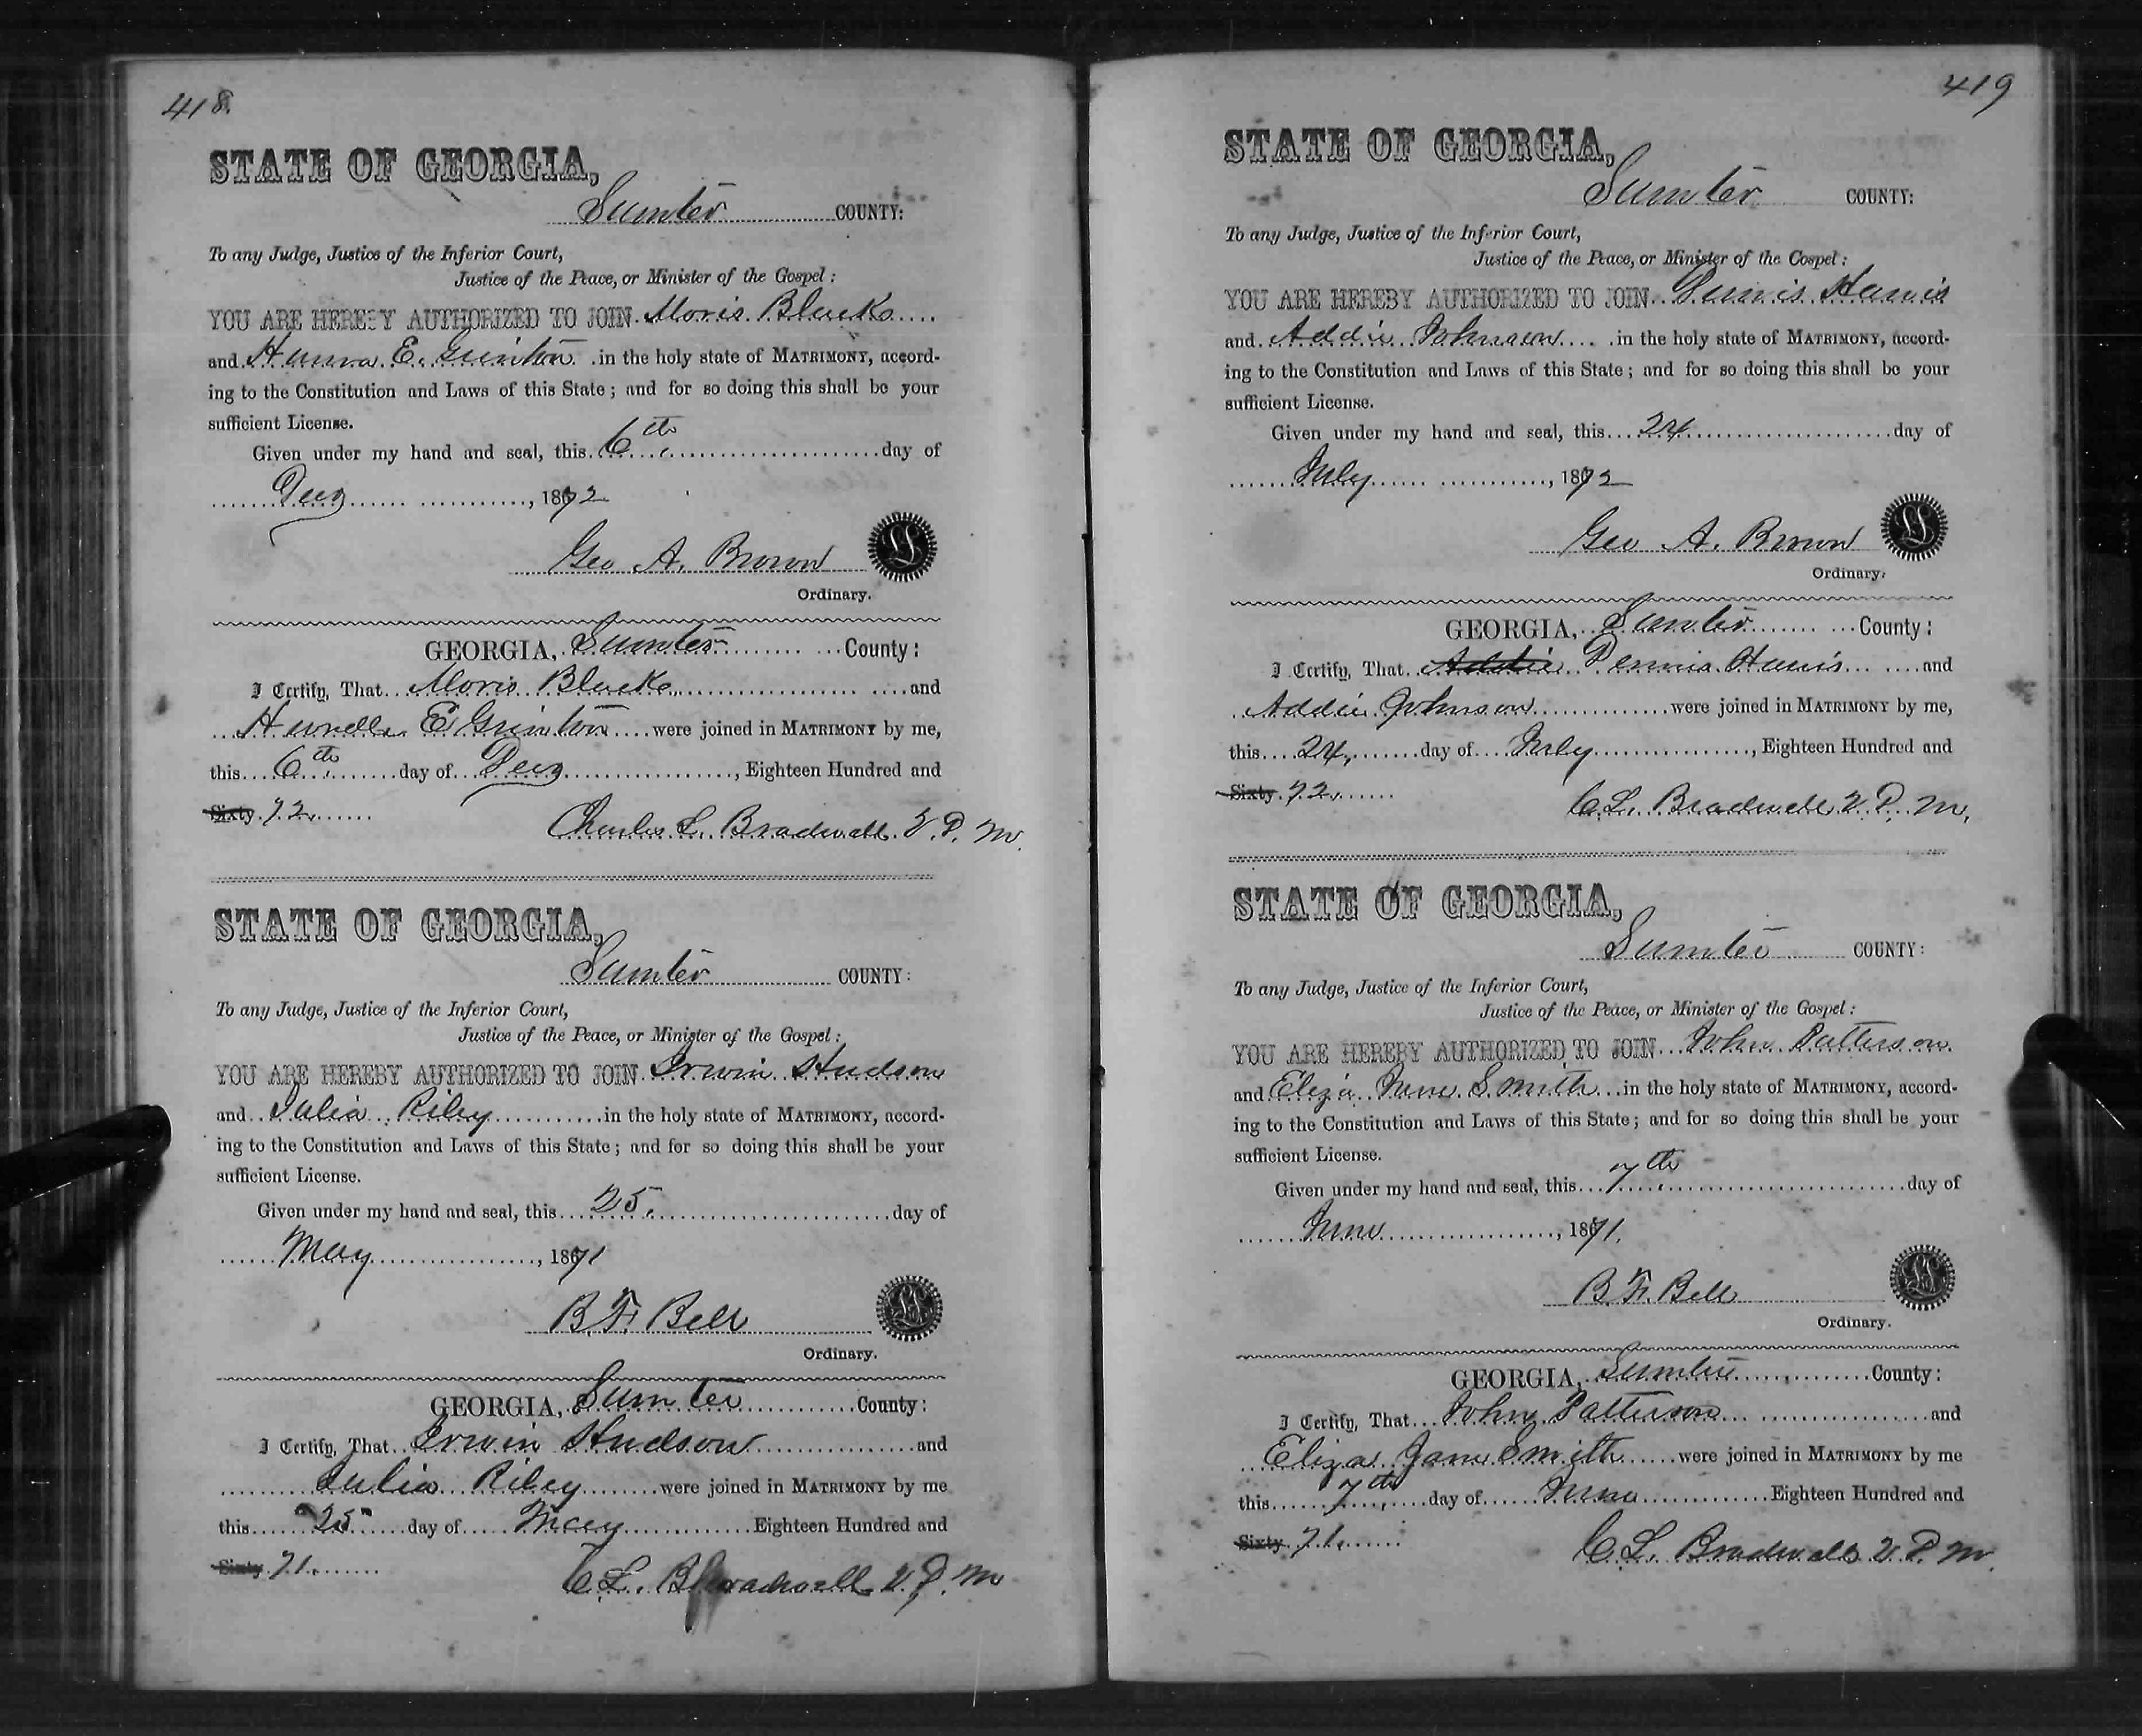 418.
STATE OF GEORGIA,
Sumter COUNTY:
To any Judge, Justice of the Inferior Court,
Justice of the Peace, or Minister of the Gospel:
YOU ARE HEREBY AUTHORIZED TO JOIN Moris Blacks
and E. in the holy state of MATRIMONY, accord-
ing to the Constitution and Laws of this State; and for so doing this shall be your
sufficient License.
Given under my hand and seal, this 6th day of
Decr, 1872
Geo A. Brown
Ordinary.
GEORGIA, Sumter County:
I Certify, That Moris Blacks and
E were joined in MATRIMONY by me,
this 6th day of Decr, Eighteen Hundred and
Sixty 72
Charles L. Bradwell V. D. M.
STATE OF GEORGIA,
Sumter COUNTY:
To any Judge, Justice of the Inferior Court,
Justice of the Peace, or Minister of the Gospel:
YOU ARE HEREBY AUTHORIZED TO JOIN Irwin Hudson
and Julia Riley in the holy state of MATRIMONY, accord-
ing to the Constitution and Laws of this State; and for so doing this shall be your
sufficient License.
Given under my hand and seal, this 25. day of
May, 1871
B. F. Bell
Ordinary.
GEORGIA, Sumter County:
I Certify, That Irwin Hudson and
Julia Riley were joined in MATRIMONY by me
this 25 day of May Eighteen Hundred and
Sixty 71
C. L. Bradwell V. D. M
419
STATE OF GEORGIA,
Sumter COUNTY:
To any Judge, Justice of the Inferior Court,
Justice of the Peace, or Minister of the Gospel:
YOU ARE HEREBY AUTHORIZED TO JOIN Dennis Harris
and Addie Johnson in the holy state of MATRIMONY, accord-
ing to the Constitution and Laws of this State; and for so doing this shall be your
sufficient License.
Given under my hand and seal, this 24 day of
July, 1872
Geo A. Brown
Ordinary.
GEORGIA, Sumter County:
I Certify, That Addie Dennis Harris and
Addie Johnson were joined in MATRIMONY by me,
this 24, day of July, Eighteen Hundred and
Sixty 72
C. L. Bradwell V. D. M.
STATE OF GEORGIA,
Sumter COUNTY:
To any Judge, Justice of the Inferior Court,
Justice of the Peace, or Minister of the Gospel:
YOU ARE HEREBY AUTHORIZED TO JOIN John Patterson
and Eliza Jane Smith in the holy state of MATRIMONY, accord-
ing to the Constitution and Laws of this State; and for so doing this shall be your
sufficient License.
Given under my hand and seal, this 7th day of
June, 1871.
B. F. Bell
Ordinary.
GEORGIA, Sumter County:
I Certify, That John Patterson and
Eliza Jane Smith were joined in MATRIMONY by me
this 7th day of June Eighteen Hundred and
Sixty 71
C. L. Bradwell V. D. M